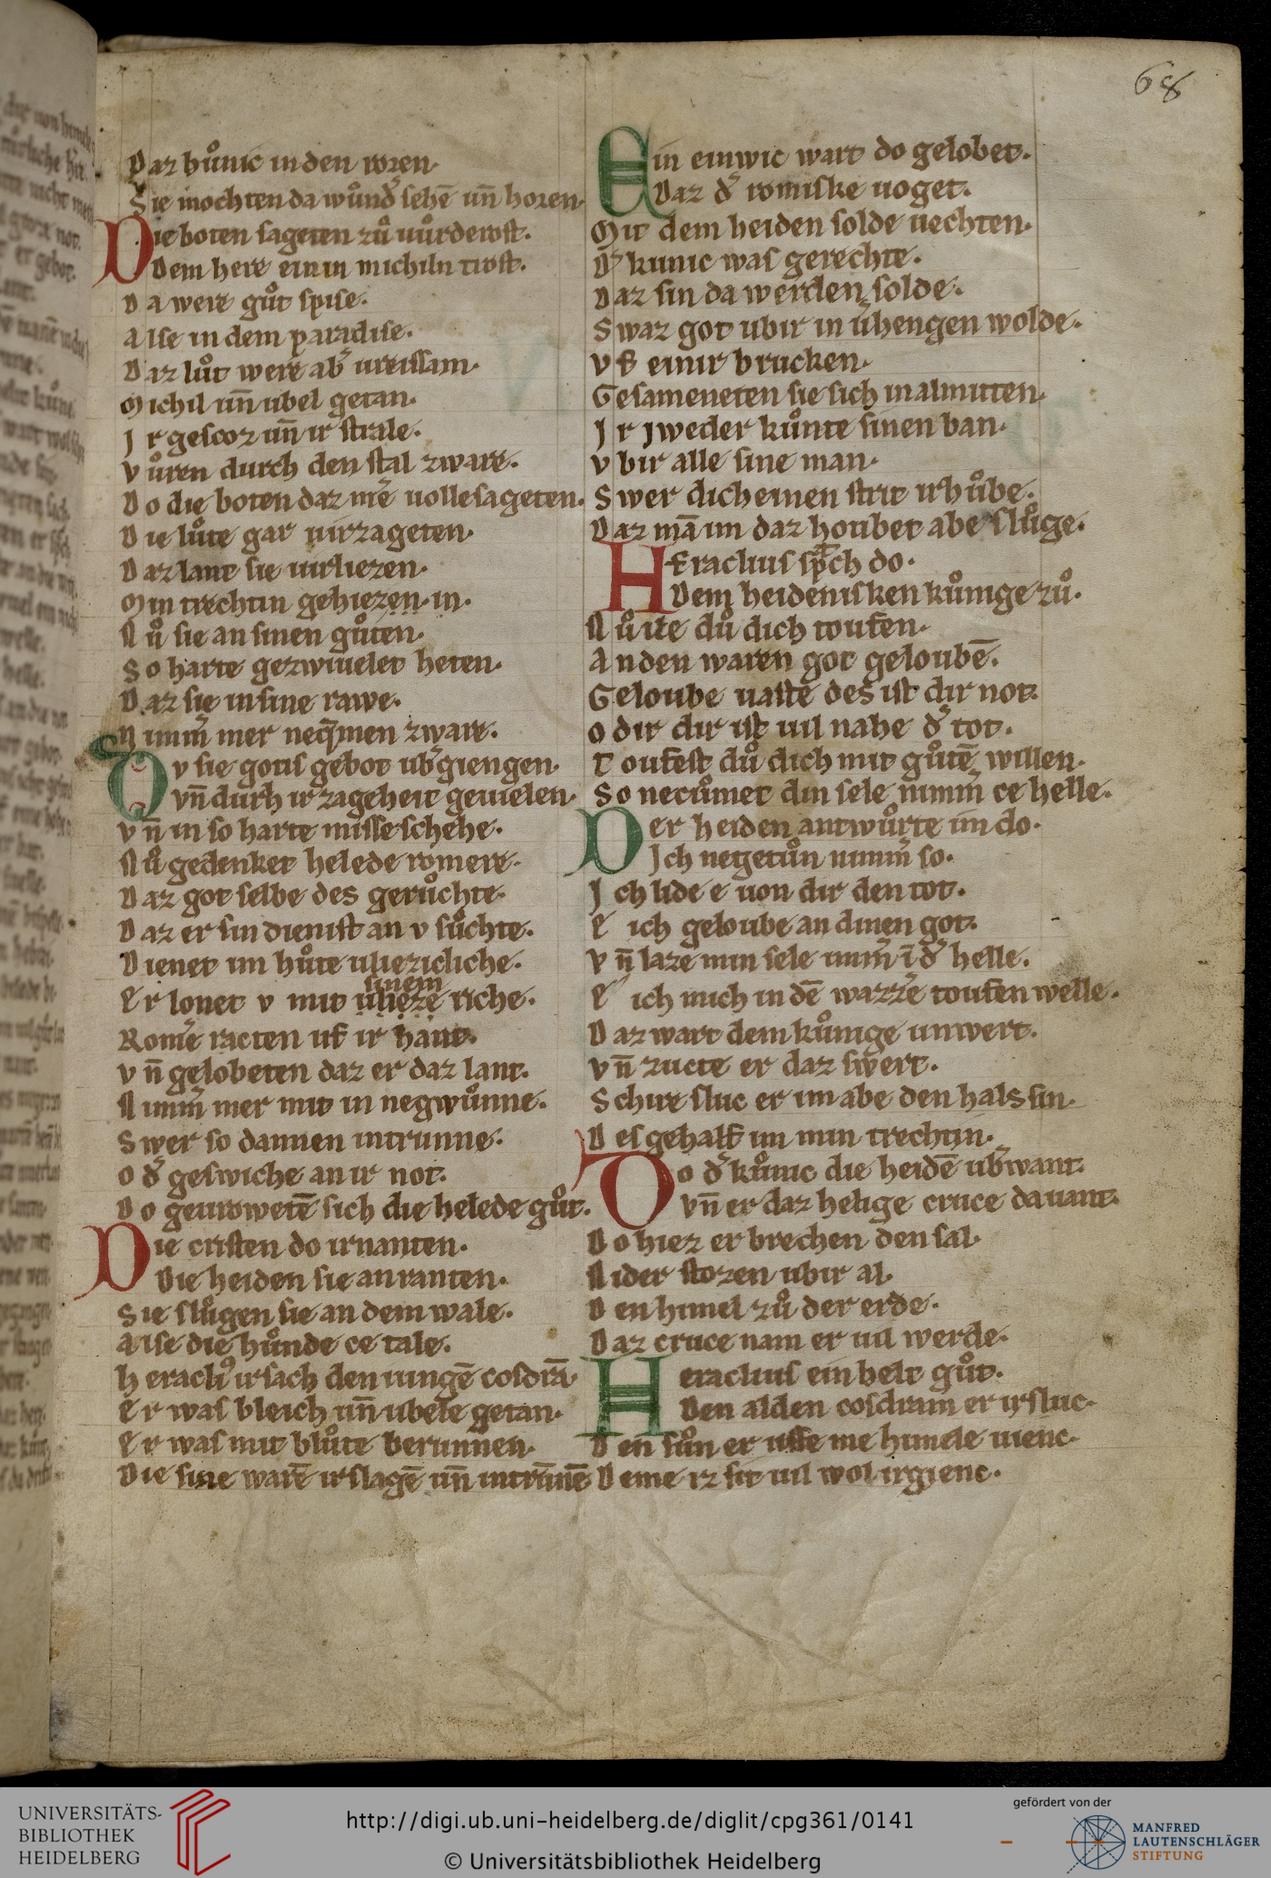 68
Daz hůnic in den roren·
Sie mochten da wůnd͛ sehē uñ horen·
Die boten sageten zů uůrderost·
Dem here einin michiln trost·
Da were gůt spise·
Alse in dem paradise·
Daz lůt were ab͛ ureissam·
Michil uñ ubel getan·
Ir gescoz uñ ir strale·
Vůren durch den stal zware·
Do die boten daz m̄e uollesageten·
Die lůte gar uirzageten·
Daz lant sie uirliezen·
Min trechtin gehiezen in·
Nů sie an sinen gůten·
So harte gezwiuelet heten·
Daz sie in sine rawe·
Nimm͛ mer neq̄men zware·
Ov sie gotis gebot ub͛giengen·
Vñ durh ir zageheit geuielen·
Vñ in so harte misseschehe·
Nů gedenket helede romere·
Daz got selbe des gerůchte·
Daz er sin dienist an v sůchte·
Dienet im hůte ulizicliche·
Er lonet v mit ulieze riche·
sinem
Rom͛e racten uf ir hant·
Vñ gelobeten daz er daz lant·
Nimm͛ mer mit in negwůnne·
Swer so dannen intrunne·
Od͛ geswiche an ir not·
Do geurowetē sich die helede gůt·
Die cristen do irnanten·
Die heiden sie an ranten·
Sie slůgen sie an dem wale·
Alse die hůnde ce tale·
Heracli⁹ irsach den iungē cosdrā·
Er was bleich uñ ubele getan·
Er was mit blůte berunnen·
Die sine warē irslagē uñ intrūnē
Ein einwic wart do gelobet·
Daz d͛ romiske uoget·
Mit dem heiden solde uechten·
D͛ kunic was gerechte·
Daz sin da werden solde·
Swaz got ubir in u͛hengen wolde·
Vf einir brucken·
Gesameneten sie sich inalmitten·
Ir iweder kůnte sinen ban·
Vbir alle sine man·
Swer dicheinen strit irhůbe·
Daz mā im daz houbet abe slůge·
Heraclius sp̄ch do·
Dem heidenisken kůnige zů·
Nů ile dů dich toufen·
An den waren got geloubē·
Geloube uaste des ist dir not·
Odir dir ist uil nahe d͛ tot·
Toufest dů dich mit gůtē willen·
So necůmet din sele nimm͛ ce helle·
Der heiden antwůrte im do·
Ich negetůn nimm͛ so·
Ich lide e uon dir den tot·
E ich geloube an dinen got·
Vñ laze min sele imm͛ ī d͛ helle·
E ich mich in dē wazz͛e toufen welle·
Daz wart dem kůnige unwert·
Vñ zucte er daz swert·
Schire sluc er im abe den hals sin·
Des gehalf im min trechtin·
Do d͛ kůnic die heidē ub͛want·
Vñ er daz helige cruce da uant·
Do hiez er brechen den sal·
Nider stozen ubir al·
Den himel zů der erde·
Daz cruce nam er uil werde·
Heraclius ein helt gůt·
Den alden cosdram er irsluc·
Den sůn er uffe me himele uienc·
Deme iz sit uil wol irgienc·
UNIVERSITÄTS-
BIBLIOTHEK
HEIDELBERG
http://digi.ub.uni-heidelberg.de/diglit/cpg361/0141
© Universitätsbibliothek Heidelberg
gefördert von der
MANFRED
LAUTENSCHLÄGER
STIFTUNG